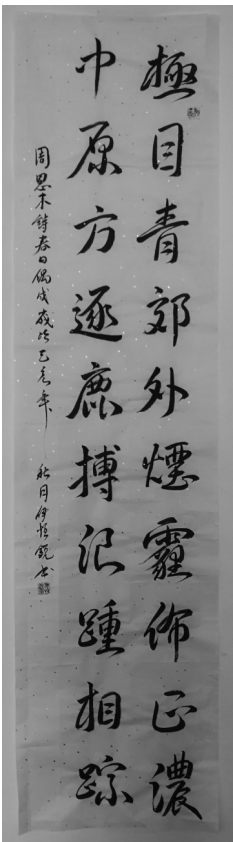 極目青郊外煙霾佈正濃
中原方逐鹿搏浪踵相踪
周恩来詩春日偶成歲次己亥年秋月伊恒书